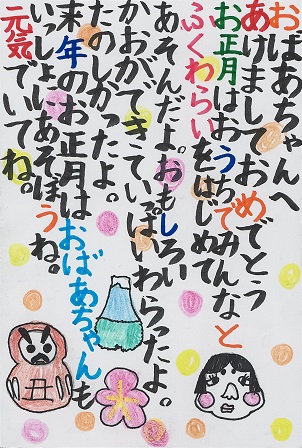 おばあちゃんへ
あけましておめでとう
お正月はおうちでみんなと
ふくわらいをはじめて
あそんだよ。おもしろい
かおができていっぱいわらったよ。
たのしかったよ。
来年のお正月はおばあちゃんも
いっしょにあそぼうね。
元気でいてね。
丑